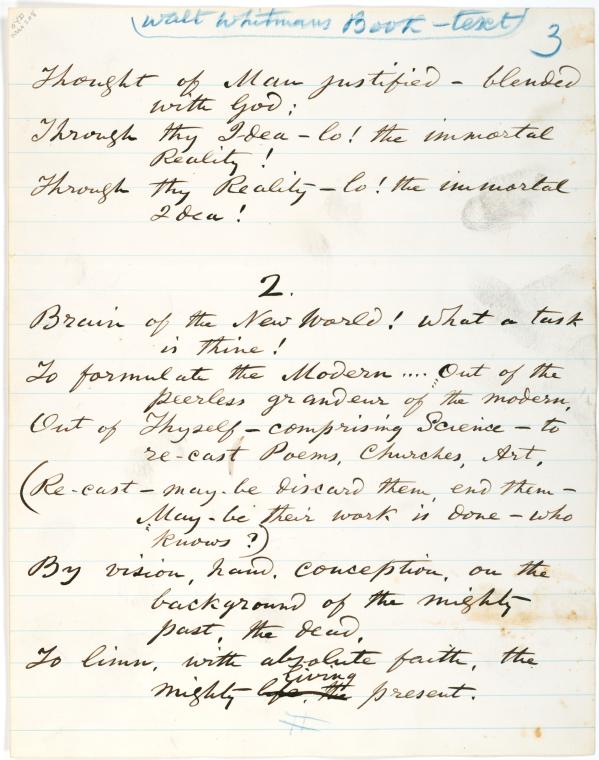 (Walt Whitmans Book-text)
3
Thought of Man justified - blended
with God;
Through thy Idea - lo! the immortal
Reality!
Through thy Reality - lo! the immortal
Idea!
2.
Brain of the New World! what a task
is thine!
To formulate the Modern .... Out of the
peerless grandeur of the modern,
Out of Thyself - comprising Science - to
re-cast Poems, Churches, Art,
(Re-cast - may-be discard them, end them -
May-be their work is done - who
knows?)
By vision, hand, conception, on the
background of the mighty
past, the dead,
To limn, with absolute faith, the
living
mighty life, the present.